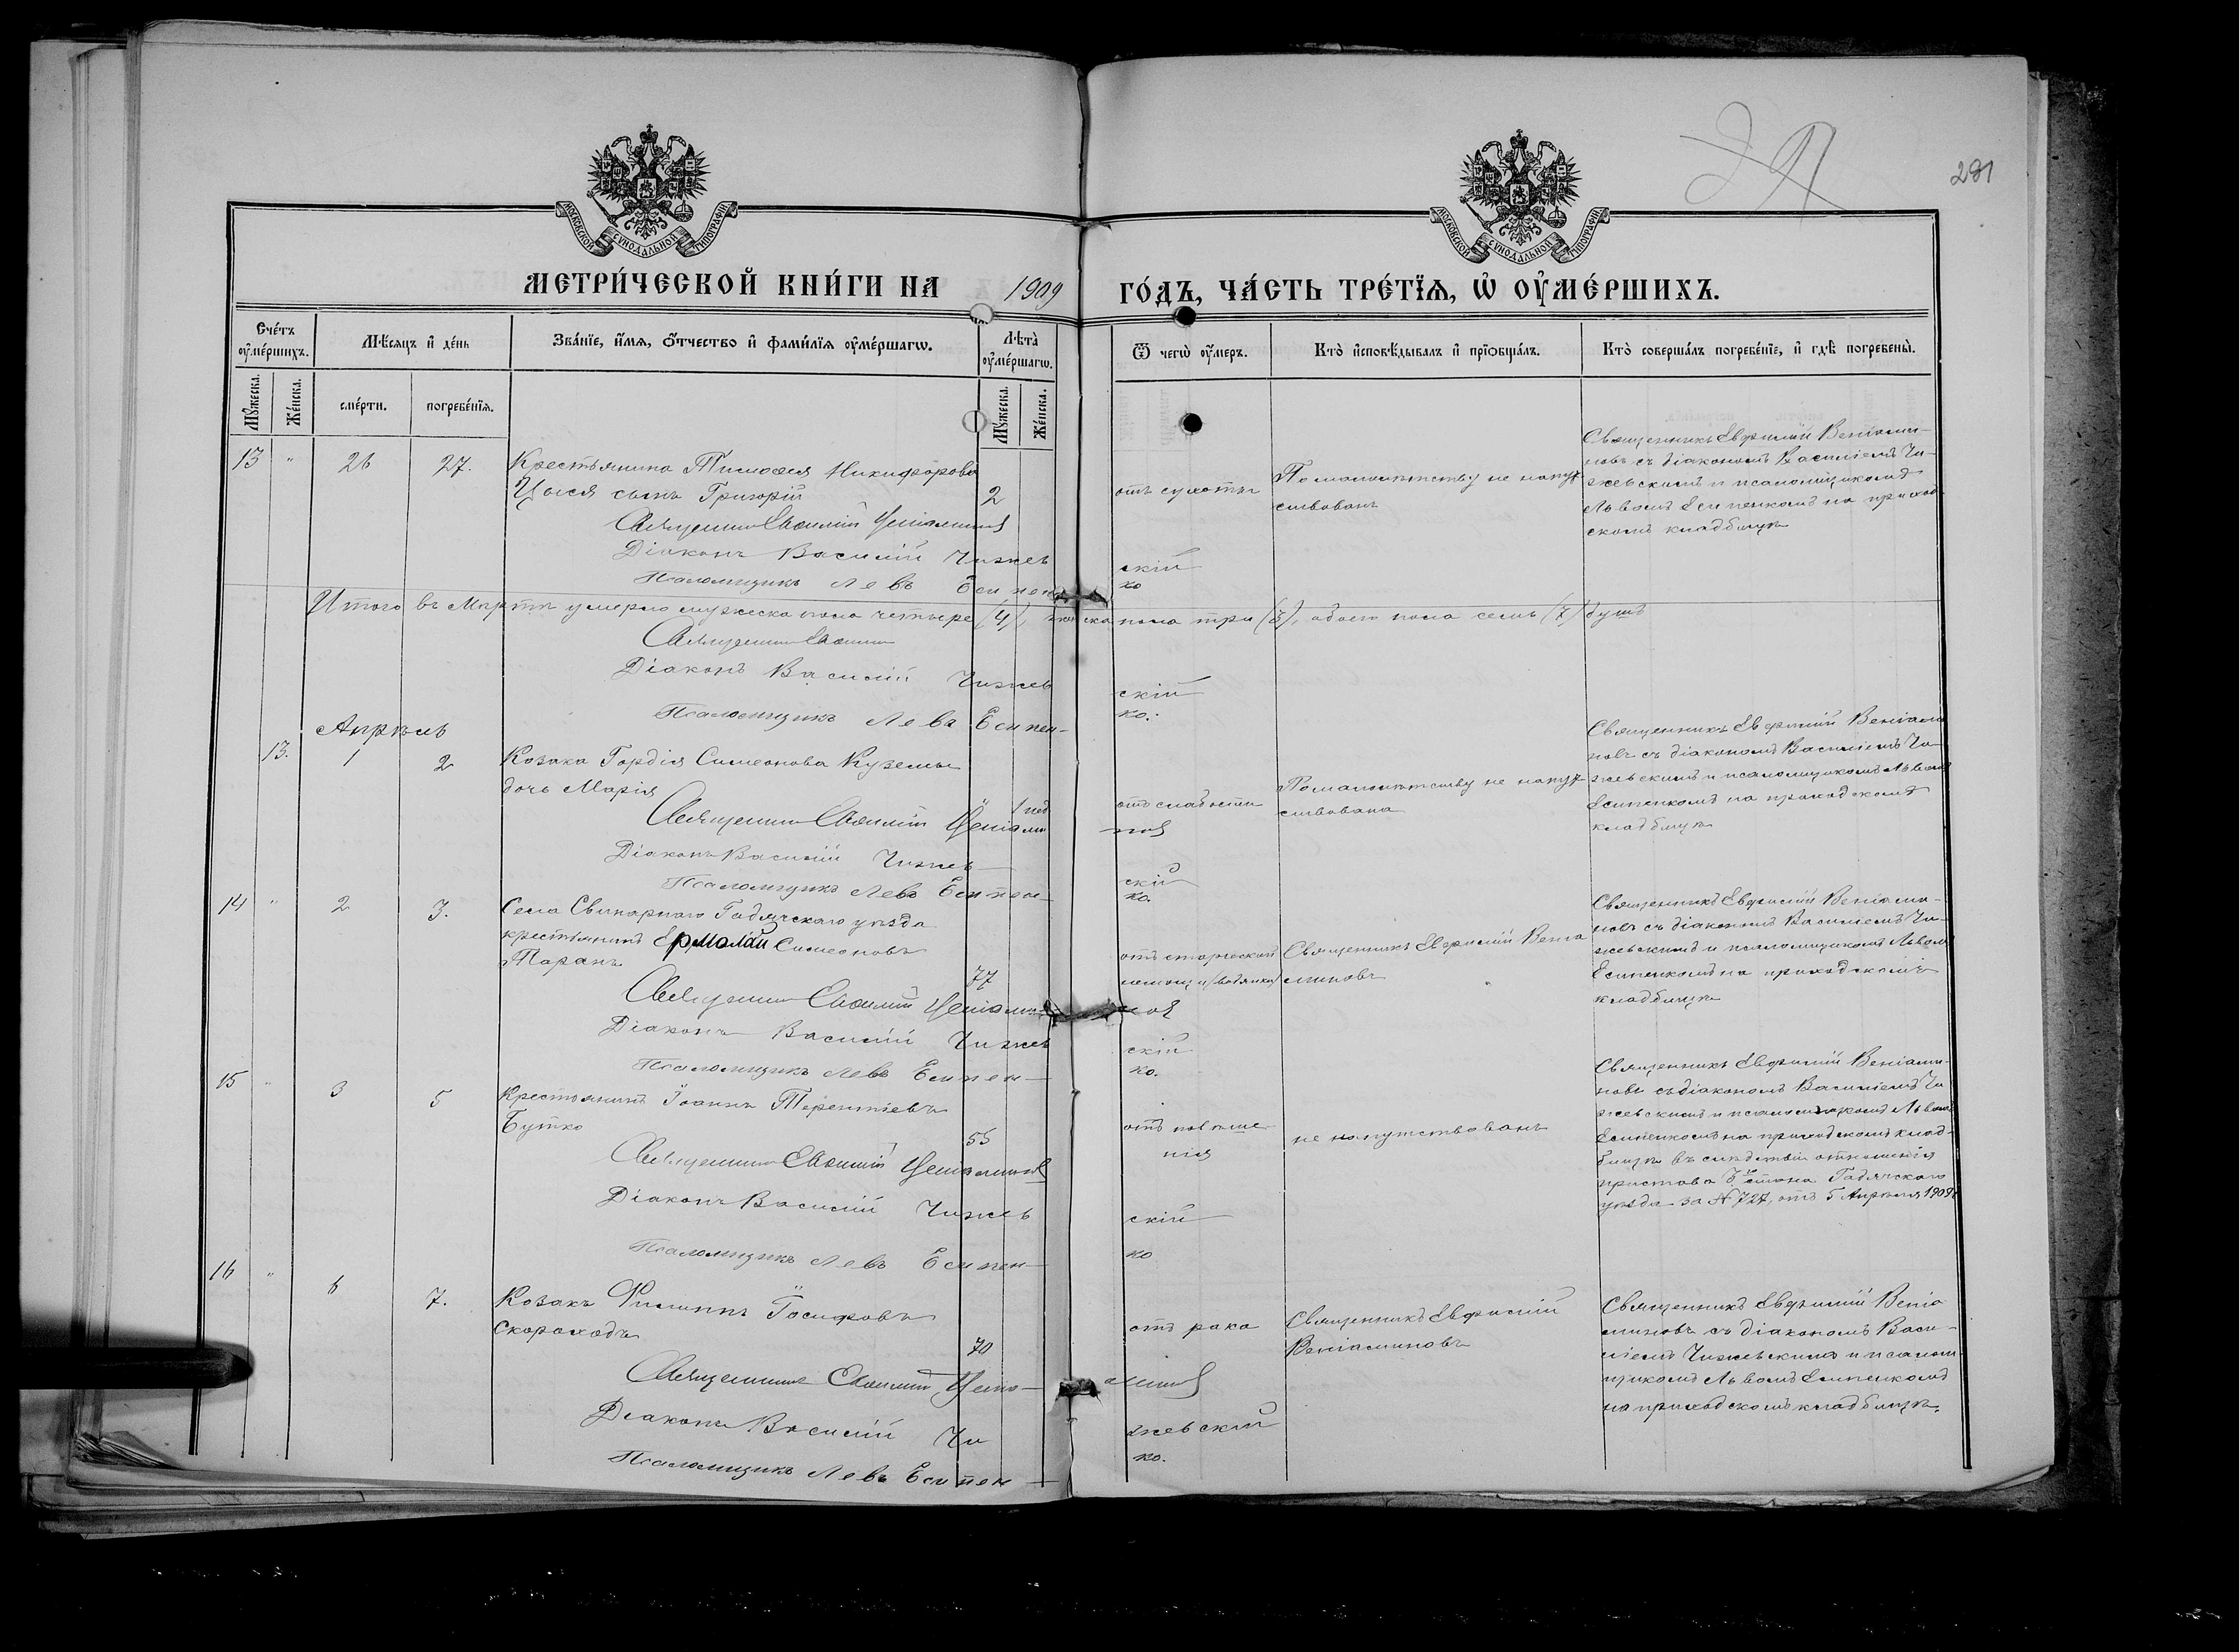 281
МОСКОВСКОЙ СУНОДАЛЬНОЙ ТИПОГРАФІИ
МОСКОВСКОЙ СУНОДАЛЬНОЙ ТИПОГРАФІИ
МЕТРИ́ЧЕСКОЙ КНИ́ГИ НА 1909 ГО́ДЪ, ЧА́СТЬ ТРЕ́ТІѦ, Ѡ҆ ОУ҆МЕ́РШИХЪ.
Сче́тъ оу҆ме́ршихъ.
Мѣ́сѧцъ и҆ де́нь
Зва́нїе, и҆́мѧ, ѻ҆́тчество и҆ фами́лїѧ оу҆ме́ршагѡ.
Лѣ́та̀ оу҆ме́ршагѡ.
Ѿ чегѡ̀ оу҆́меръ.
Кто̀ и҆сповѣ́дывалъ и҆ прїѡбща́лъ.
Кто̀ соверша́лъ погребе́нїе, и҆ гдѣ̀ погребены̀.
Мꙋ́жеска.
Же́нска.
сме́рти.
погребе́нїѧ.
Мꙋ́жеска.
Же́нска.
13 " 26 27.
Крестьянина Тимоѳея Никифорова
Цыся сынъ Григорій
2
отъ сухоты
По малолѣтству не напут
ствованъ
Священникъ Евфимій Веніами-
новъ съ діакономъ Василіемъ Чи-
жевскимъ и псаломщикомъ
Львомъ Есипенкомъ на приход
скомъ кладбищѣ
Священникъ Евфимій Веніаминовъ
Діаконъ Василій Чижевскій
Псаломщикъ Левъ Есипенко
Итого въ Мартѣ умерло мужеска пола четыре (4), женска пола три (3), обоего пола семь (7) душъ
Священникъ Евфимій
Діаконъ Василій Чижевскій
Псаломщикъ Левъ Есипен-ко.
Апрѣль
13. 1 2
Козака Гордія Симеонова Куземы
дочь Марія
1 нед
отъ слабости
По малолѣтству не напут
ствована
Священникъ Евфимій Веніами
новъ съ діакономъ Василіемъ Чи
жевскимъ и псаломщикомъ Львомъ
Есипенкомъ на приходскомъ
кладбищѣ
Священникъ Евфимій Веніаминовъ
Діаконъ Василій Чижевскій
Псаломщикъ Левъ Есипен-ко.
14 " 2 3.
Села Свинарнаго Гадячскаго уѣзда
крестьянинъ Ермолай Симеоновъ
Таранъ
77
отъ старческой
немощи (водянка)
Священникъ Евфимій Веніа
миновъ
Священникъ Евфимій Веніами-
новъ съ діакономъ Василіемъ Чи-
жевскимъ и псаломщикомъ Львомъ
Есипенкомъ на приходскомъ
кладбищѣ
Священникъ Евфимій Веніаминовъ
Діаконъ Василій Чижевскій
Псаломщикъ Левъ Есипен-ко.
15 " 3 5
Крестьянинъ Іоаннъ Терентіевъ
Бутко
55
отъ повѣше
нія
не напутствованъ
Священникъ Евфимій Веніами-
новъ съ діакономъ Василіемъ Чи
жевскимъ и псаломщикомъ Львомъ
Есипенкомъ на приходскомъ клад-
бищѣ въ слѣдствіи отношенія
пристава стана Гадячскаго
уѣзда за № 727, отъ 5 Апрѣля 1909 г
Священникъ Евфимій Веніаминовъ
Діаконъ Василій Чижевскій
Псаломщикъ Левъ Есипен-ко
16 " 6 7.
Козакъ Филиппъ Іосифовъ
Скороходъ
70
отъ рака
Священникъ Евфимій
Веніаминовъ
Священникъ Евфимій Веніа
миновъ съ діакономъ Васи-
ліемъ Чижевскимъ и псалом
щикомъ Львомъ Есипенкомъ
на приходскомъ кладбищѣ.
Священникъ Евфимій Веніа-миновъ
Діаконъ Василій Чижевскій
Псаломщикъ Левъ Есипен-ко.